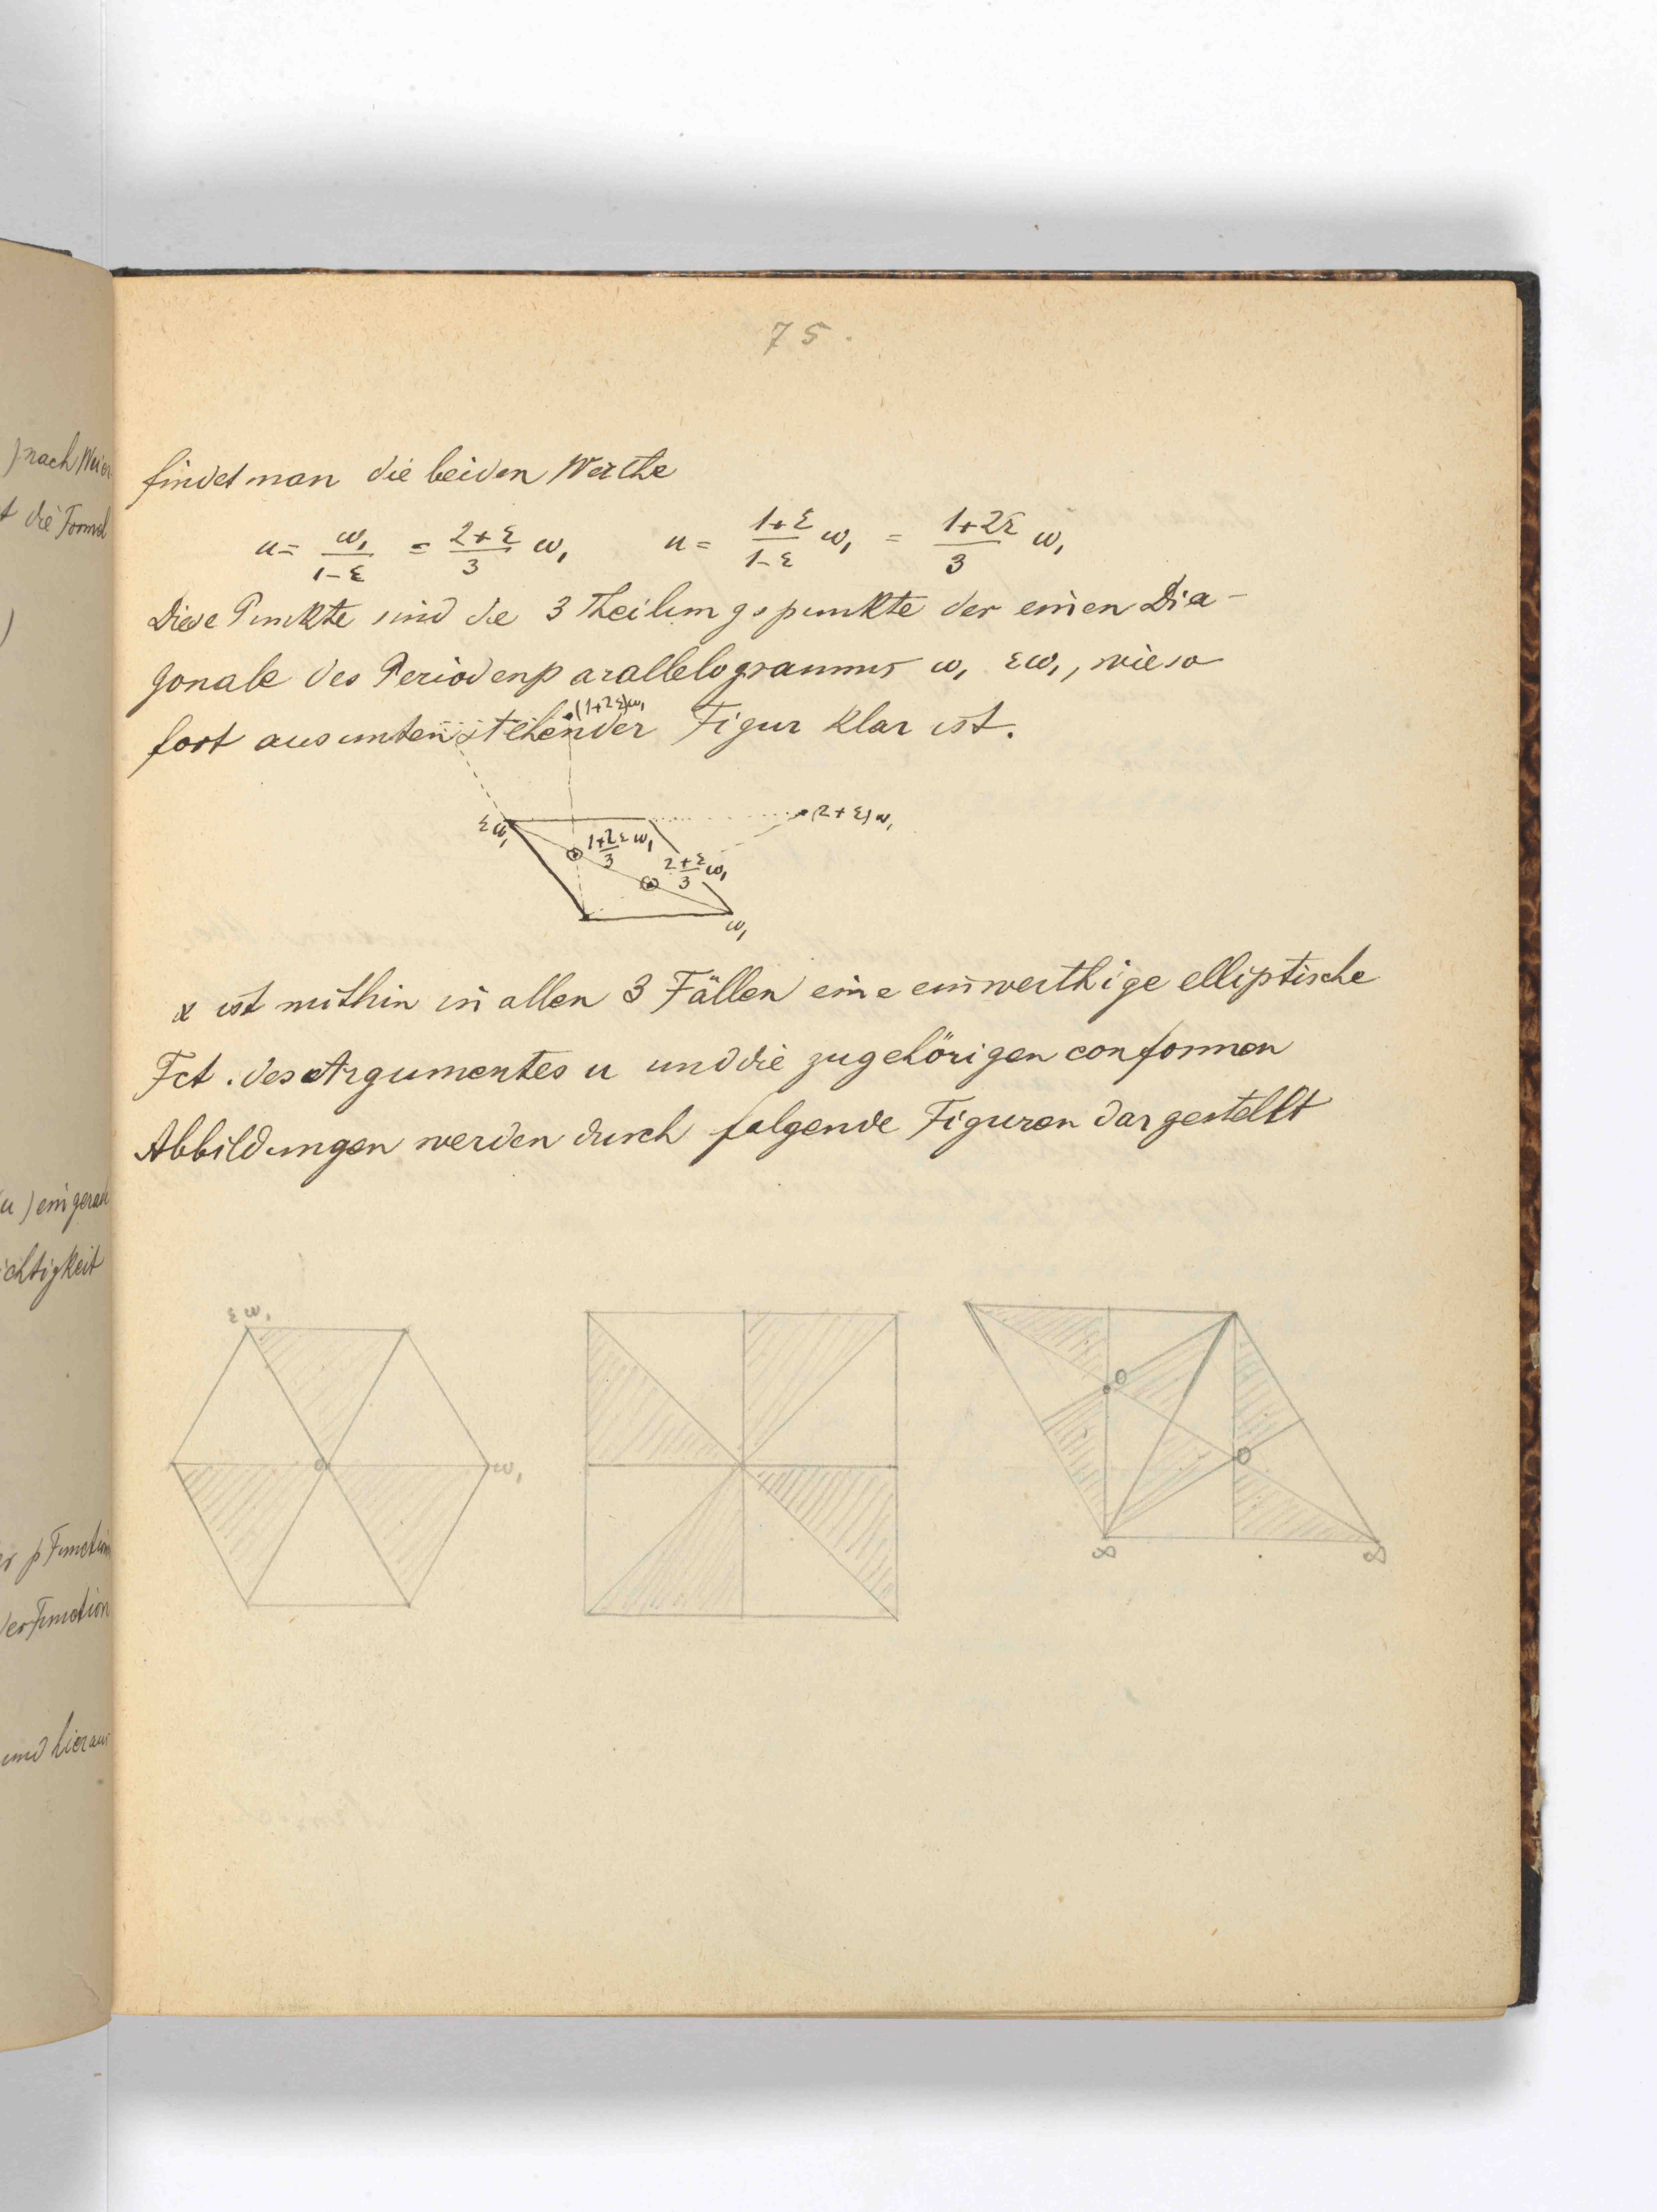 75.
) nach Weier
t die Formel
)
(u) eine gerade
ichtigkeit
er p Function
der Function
und hieraus
findet man die beiden Werthe
u = ω₁/(1-ε) = (2+ε)/3 ω₁ u = (1+ε)/(1-ε) ω₁ = (1+2ε)/3 ω₁
Diese Punkte sind die 3 Theilungspunkte der einen Dia-
gonale des Periodenparallelogramms ω₁ εω₁, wie so
fort aus untenstehender Figur klar ist.
(1+2ε)ω₁
εω₁
(2+ε)ω₁
(1+2ε)/3 ω₁
(2+ε)/3 ω₁
ω₁
x ist mithin in allen 3 Fällen eine einwerthige elliptische
Fct. des Argumentes u und die zugehörigen conformen
Abbildungen werden durch folgende Figuren dargestellt
εω₁
0
ω₁
0
0
∞
∞